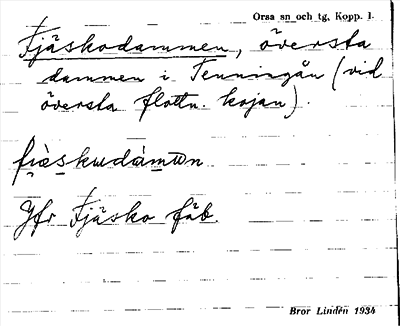 Orsa sn och tg, Kopp. l.
Fjäskodammen, översta
dammen i Tenningån (vid
översta flottn. kojan).
Jfr Fjäsko fäb.
Bror Lindén 1934